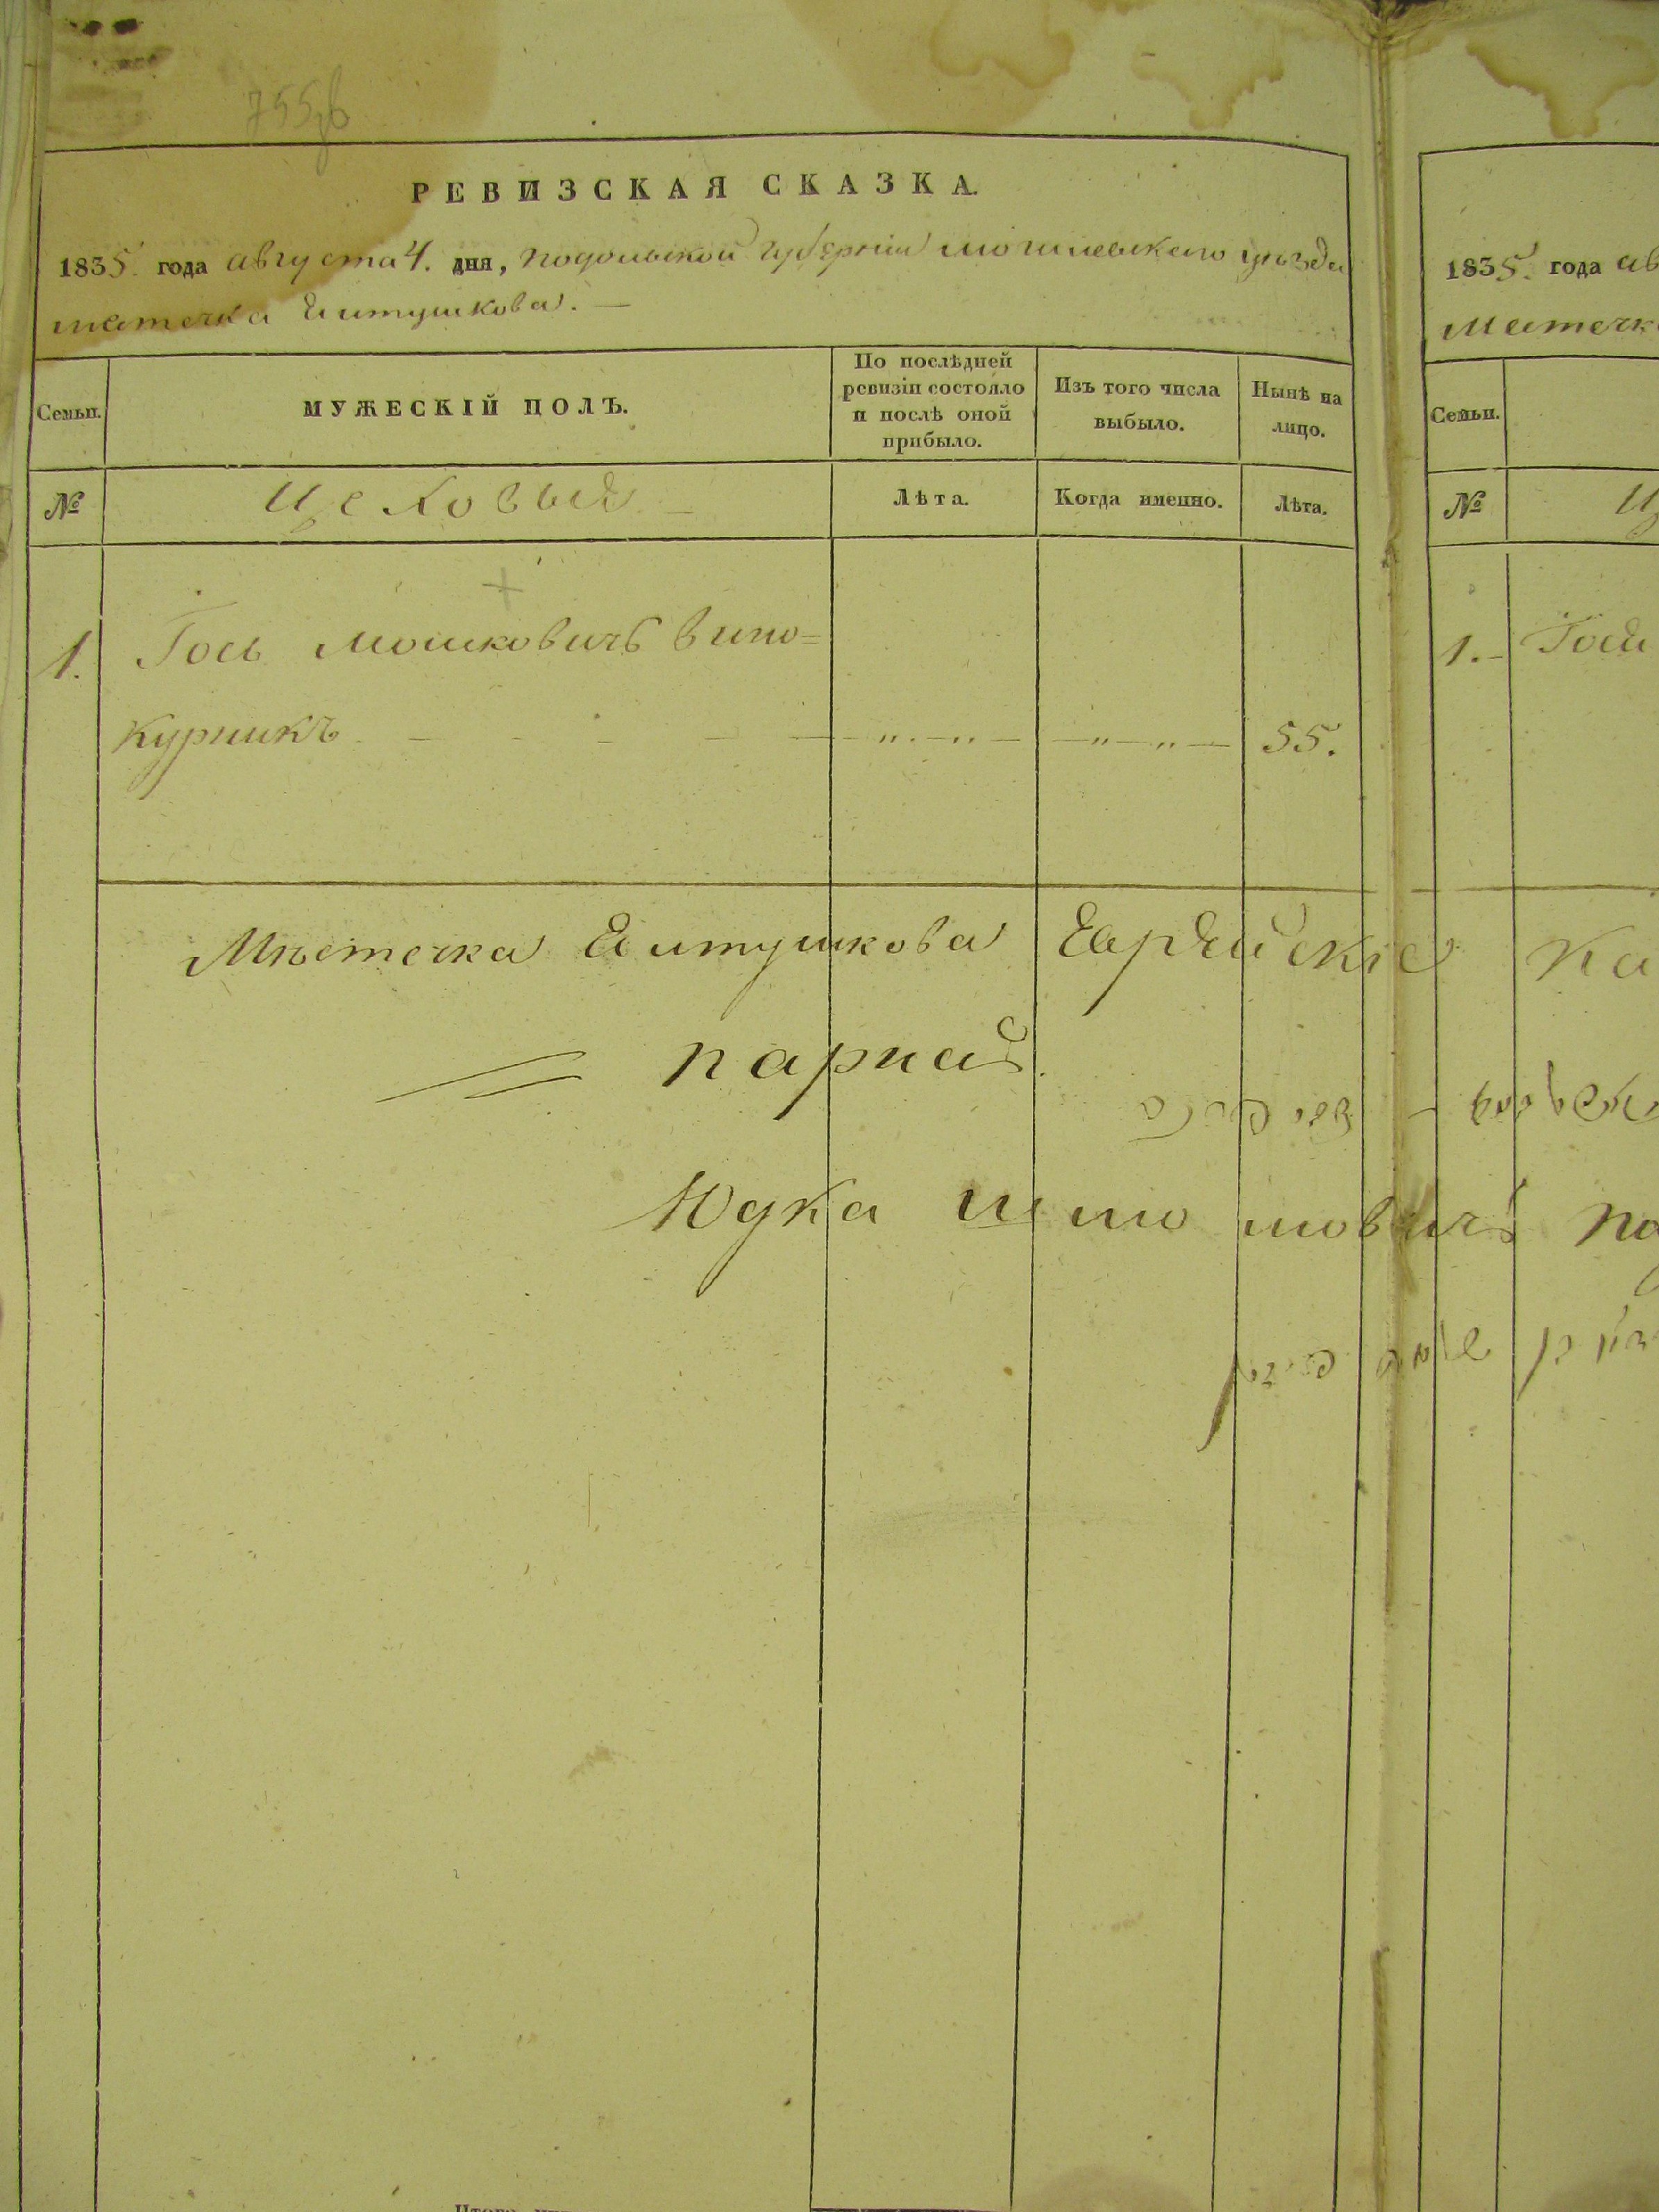 РЕВИЗСКАЯ СКАЗКА.
1835 года августа 4. дня, Подольской губернии Могилевского уѣзда
местечка Елтушкова. —
Семьи.
МУЖЕСКІЙ ПОЛЪ.
По послѣдней ревизіи состояло и послѣ оной прибыло.
Изъ того числа выбыло.
Нынѣ на лицо.
№
Цеховые
Лѣта.
Когда именно.
Лѣта.
1. Гось Мошковичъ Вино=
курникъ — — — „ — „ — — „ — „ — 55.
Мѣстечка Елтушкова Еврейскіе Ка
Юдка Шмо
1835. года ав
Местечк
Семьи.
№
Ц
1.